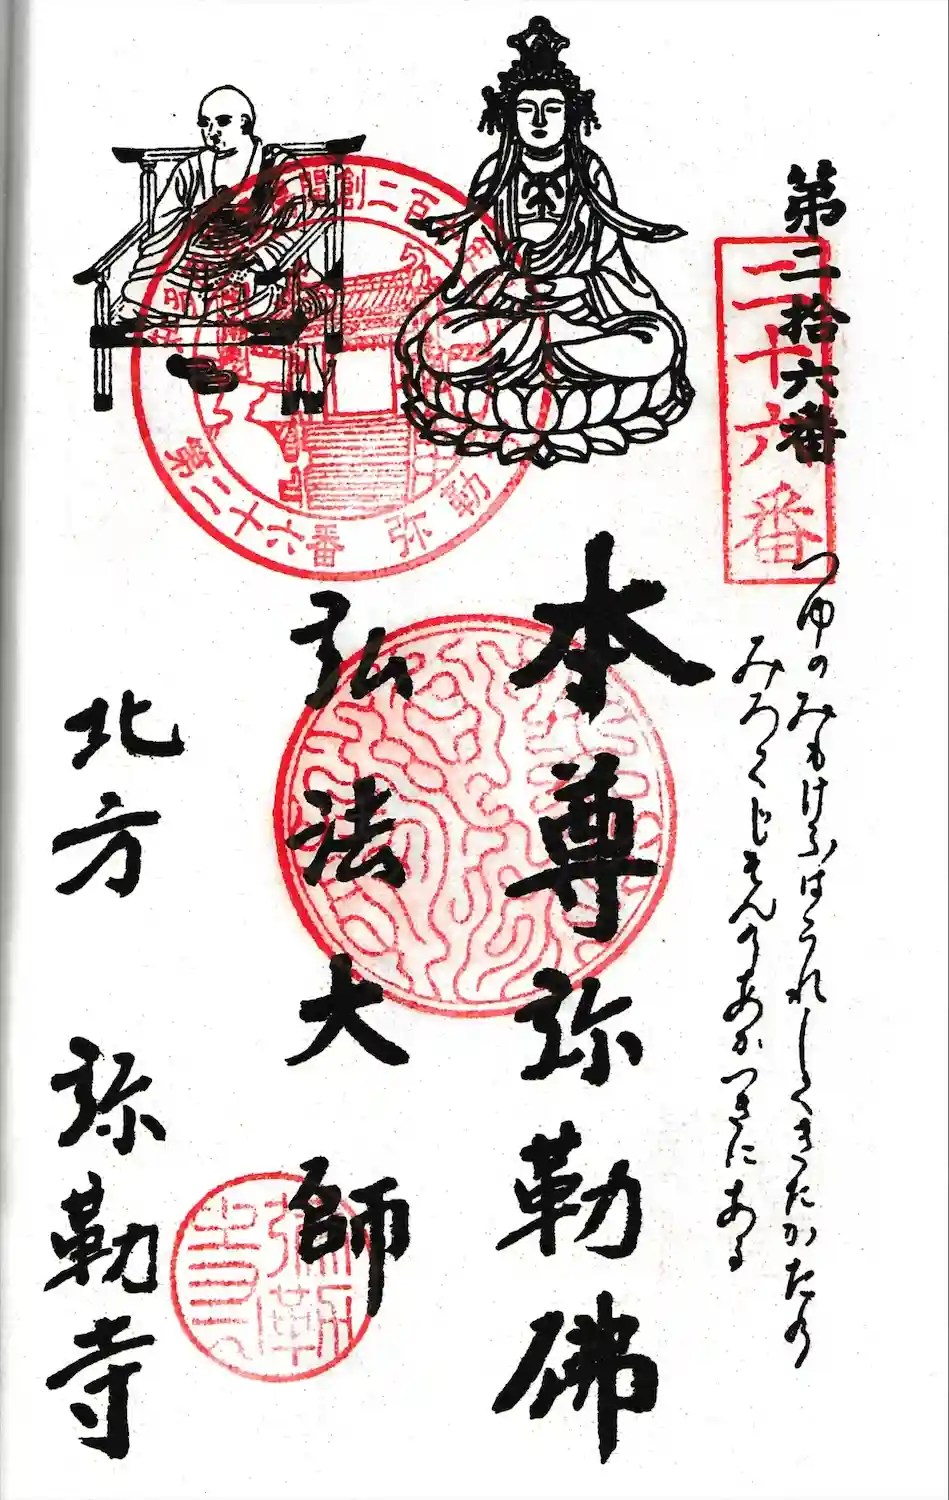 第二拾六番
二十六番
つゆのみもけふはうれしくきたかたの
みろくじそんのあかつきにあふ
本尊弥勒佛
弘法大師
北方 弥勒寺
創二百
第二十六番 弥勒